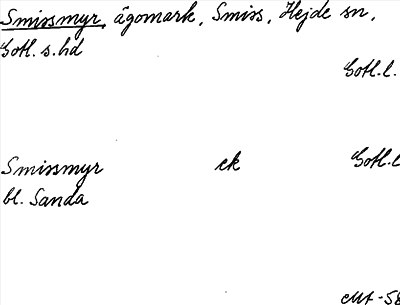 Smissmyr, ägomark, Smiss, Hejde sn,
Gotl. s. hd
Gotl. l.
Smissmyr ek Gotl. l
bl. Sanda